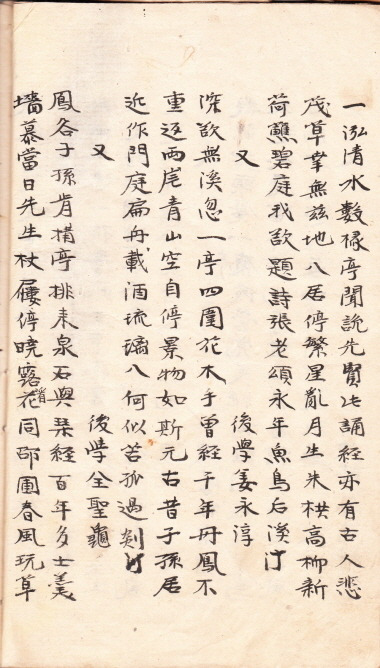 一泓清水數椽亭聞說先賢此誦經亦有古人悲
茂草幸無玆地入居停繁星亂月生朱栱高柳新
荷蘸碧庭我欲題詩張老頌永年魚鳥后溪汀
又 後學姜永淳
深欲無溪忽一亭四圍花木手曾經千年丹鳳不
重返兩岸青山空自停景物如斯元古昔子孫居
近作門庭扁舟載酒琉璃入何似苦孤過剡汀
又 後學全聖龜
鳳谷子孫肯構亭排來泉石與琴經百年多士羹
墻慕當日先生杖屨停曉露宿花同邵圃春風玩草